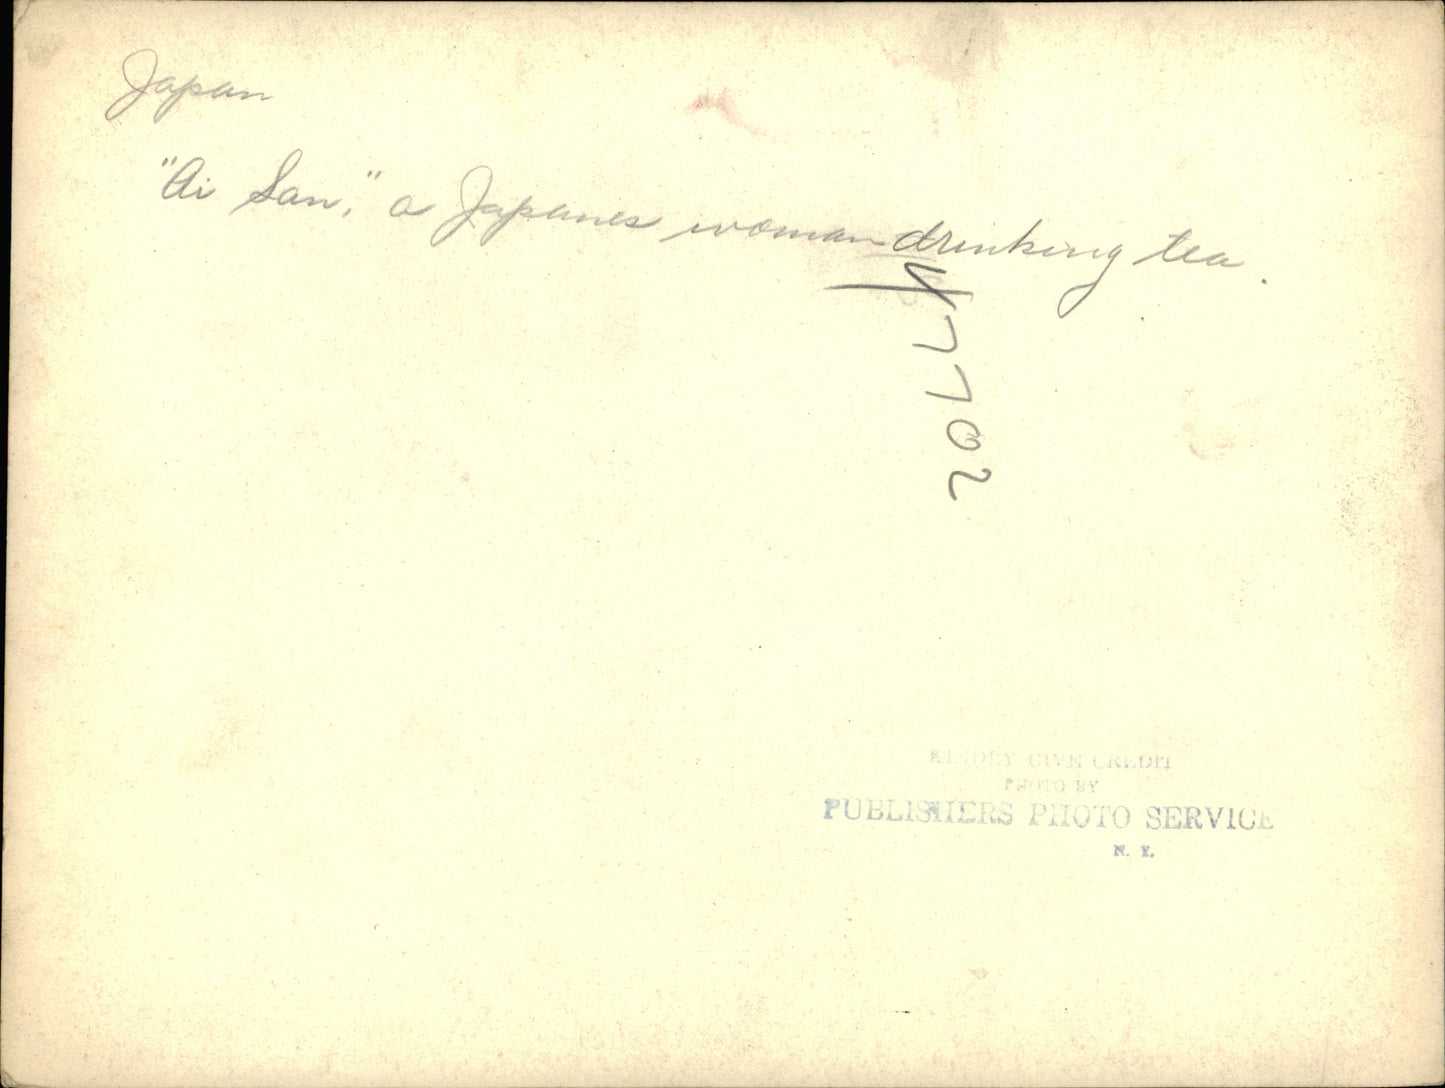 Japan
"Ai San," a Japanes woman drinking tea.
47702
KINDLY GIVE CREDIT
PHOTO BY
PUBLISHERS PHOTO SERVICE
N. Y.